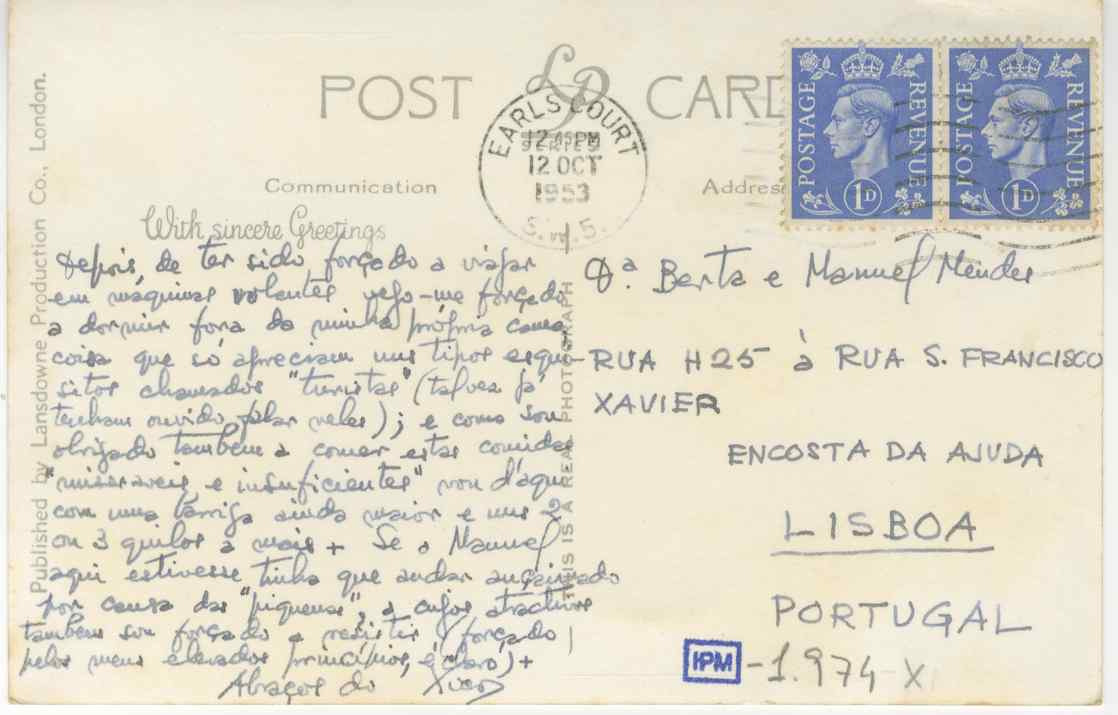 POST CARD
LP
SERIES
Communication
Address
With sincere Greetings
Published by Lansdowne Production Co., London.
THIS IS A REAL PHOTOGRAPH
EARLS COURT
12 45 PM
12 OCT
1953
S.W.5.
POSTAGE REVENUE
1D
POSTAGE REVENUE
1D
depois de ter sido forçado a viajar
em máquinas volantes vejo-me forçado
a dormir fora da minha própria cama
coisa que só apreciam uns tipos esqui-
sitos chamados "turistas" (talvez já
tenham ouvido falar neles); e como sou
obrigado também a comer estas comidas
"miseraveis e insuficientes" vou d'aqui
com uma barriga ainda maior e uns 2
ou 3 quilos a mais + Se o Manuel
aqui estivesse tinha que andar açaimado
por causa das "piquenas", a cujos atractivos
também sou forçado a resistir (forçado
pelos meus elevados princípios, é claro) +
Abraços do Xico
Dª. Berta e Manuel Mendes
RUA H25 à RUA S. FRANCISCO
XAVIER
ENCOSTA DA AJUDA
LISBOA
PORTUGAL
IPM -1.974-X